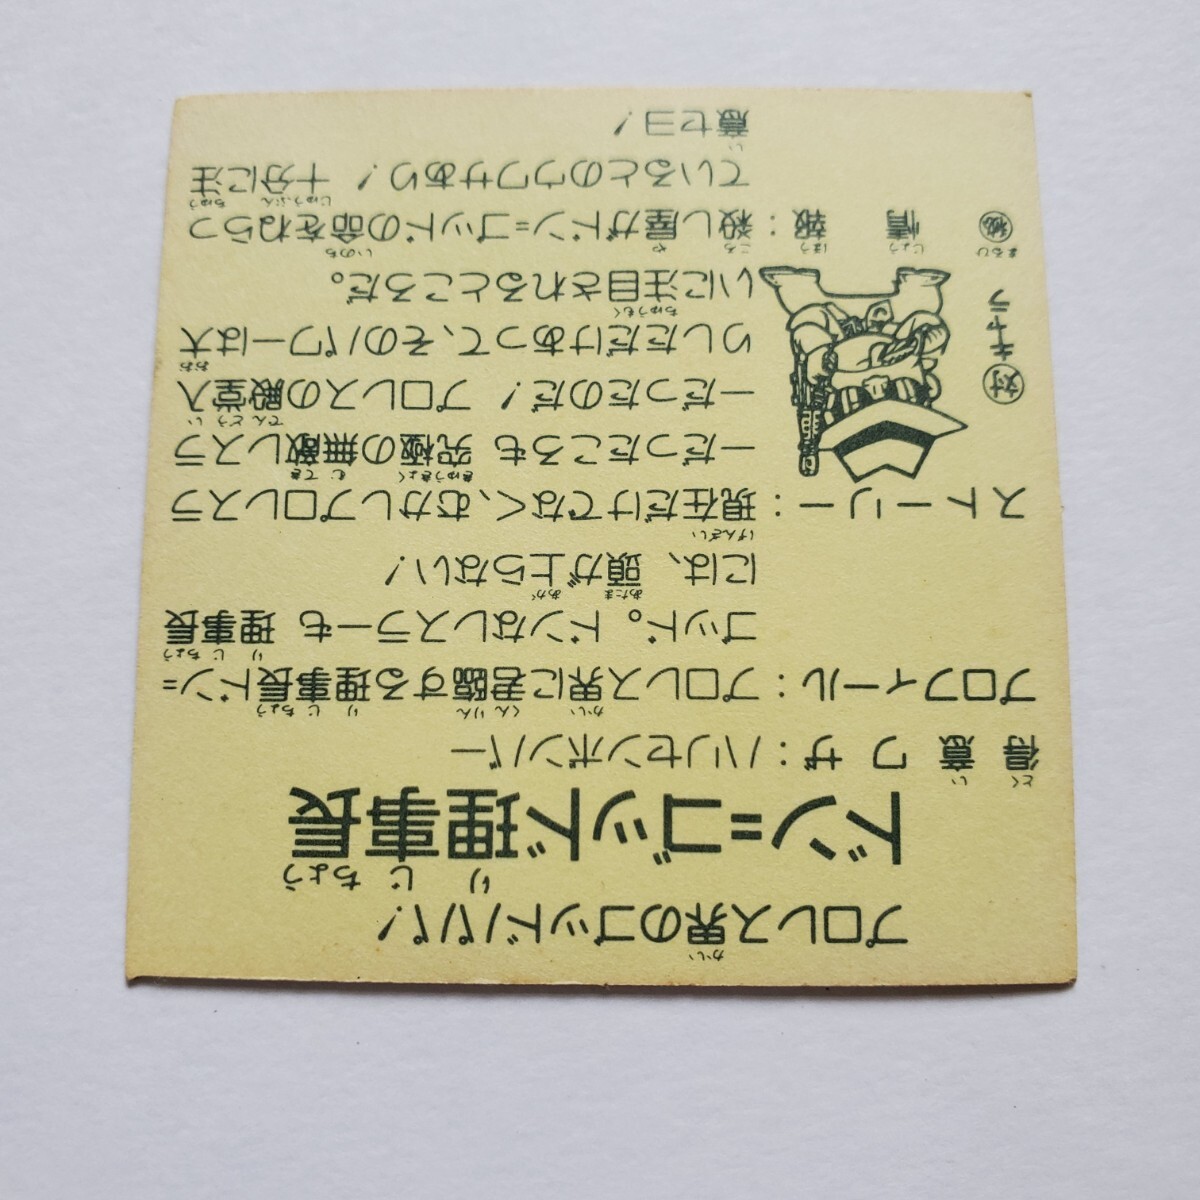 プロレス界のゴッドパパ!
ドン=ゴッド理事長
得意ワザ:ハリセンボンバー
プロフィール:プロレス界に君臨する理事長ドン=
ゴッド。ドンなレスラーも 理事長
には、頭が上らない!
ストーリー:現在だけでなく、むかしプロレスラ
ーだったころも 究極の無敵レスラ
ーだったのだ! プロレスの殿堂入
りしただけあって、そのパワーは大
いに注目されるところだ。
対キャラ
㊙情報:殺し屋がドン=ゴッドの命をねらっ
ているとのウワサあり! 十分に注
意セヨ!